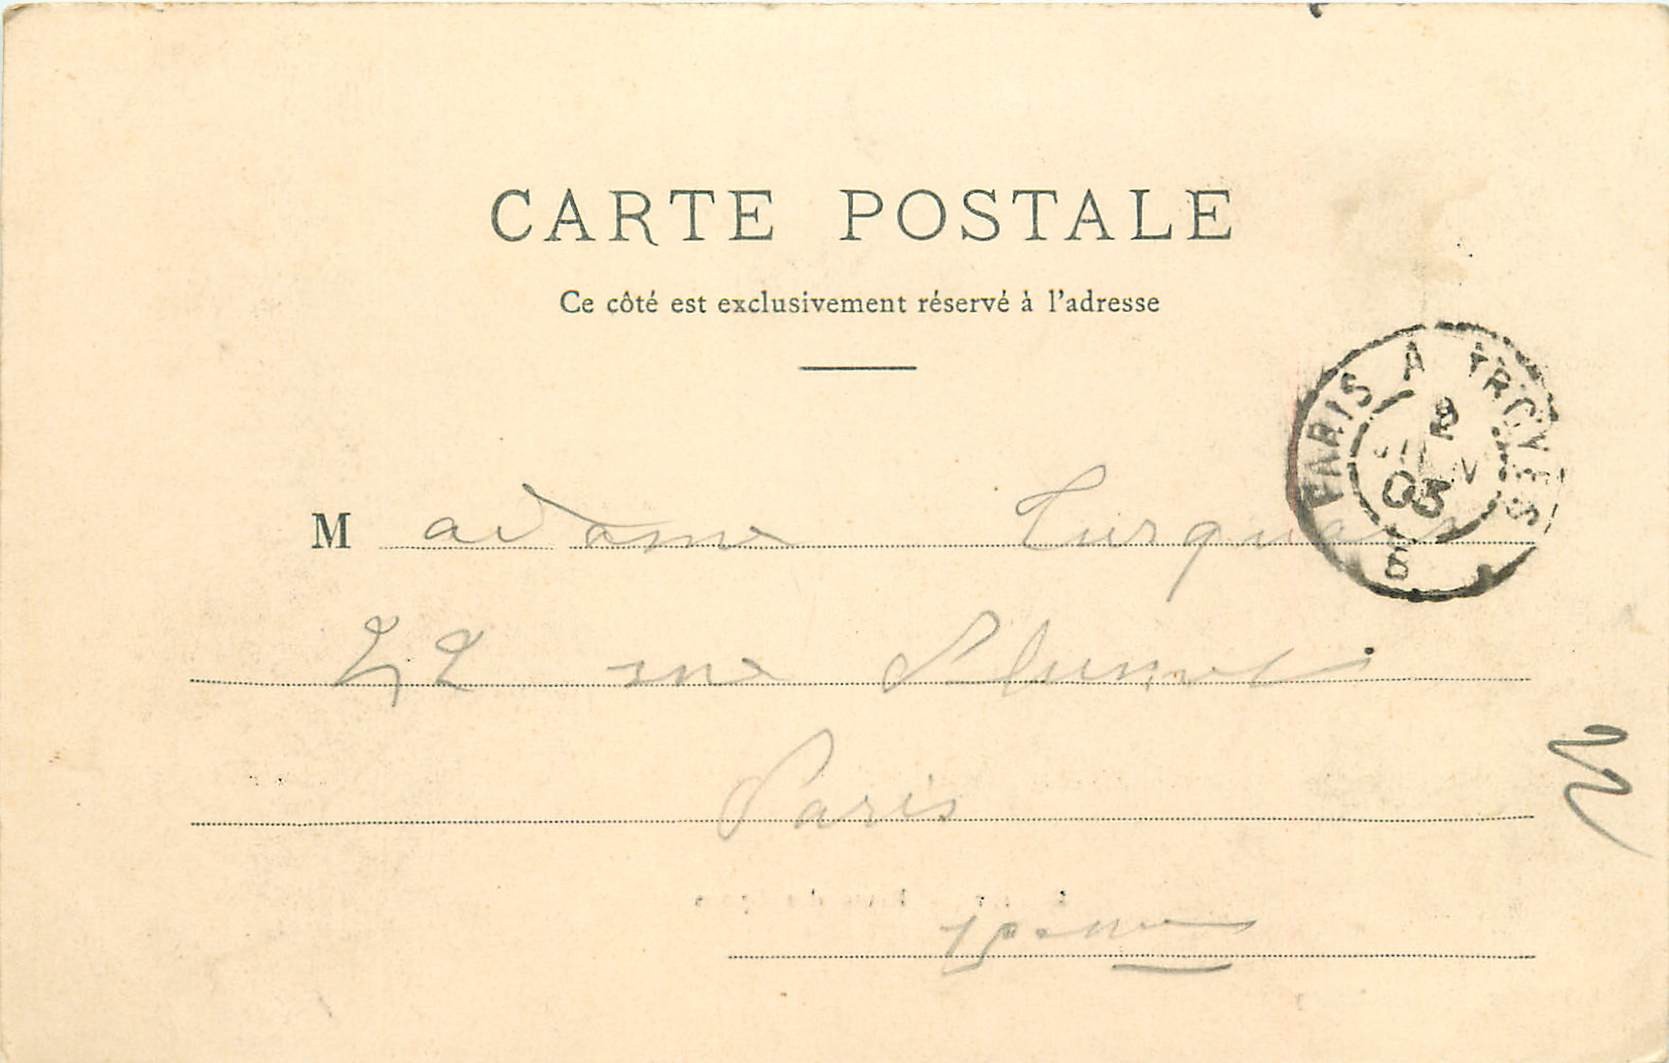 CARTE POSTALE
Ce côté est exclusivement réservé à l'adresse
PARIS A TROYES
03
Madame Turquais
42 rue Plumet
Paris
15ème